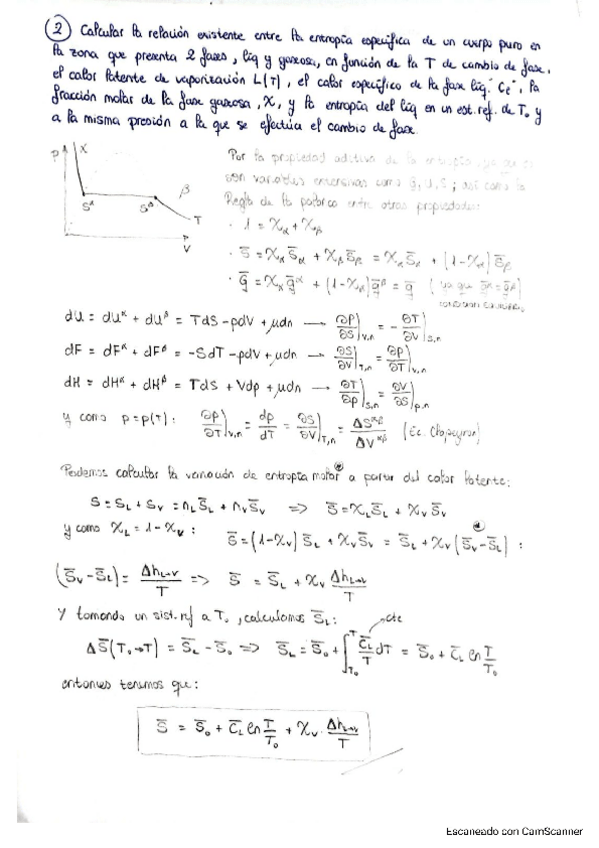 ② Calcular la relación existente entre la entropía específica de un cuerpo puro en
la zona que presenta 2 fases, líq y gaseosa, en función de la T de cambio de fase,
el calor latente de vaporización L(T), el calor específico de la fase líq. Cₑ, la
fracción molar de la fase gaseosa, X, y la entropía del líq en un est.ref. de T₀ y
a la misma presión a la que se efectúa el cambio de fase.
P α
Sᵅ Sᵝ β
T
V
Por la propiedad aditiva de la
son variables extensivas como G, U, S; así como la
Regla de la palanca entre otras propiedades:
· 1 = Xα + Xβ
· S̄ = Xα S̄α + Xβ S̄β = Xα S̄α + (1-Xα) S̄β
· ḡ = Xα ḡᵅ + (1-Xα) ḡᵝ = ḡ (ya que ḡᵅ = ḡᵝ)
dU = dUᵅ + dUᵝ = TdS - pdV + μdn → ∂p/∂S|V,n = - ∂T/∂V|S,n
dF = dFᵅ + dFᵝ = -SdT - pdV + μdn → ∂S/∂V|T,n = ∂p/∂T|V,n
dH = dHᵅ + dHᵝ = TdS + Vdp + μdn → ∂T/∂p|S,n = ∂V/∂S|p,n
y como p = p(T) : ∂p/∂T|V,n = dp/dT = ∂S/∂V|T,n = ΔSᵅᵝ/ΔVᵅᵝ (Ec. Clapeyron)
Podemos calcular la variación de entropía molar a partir del calor latente:
S = S_L + S_V = n_L S̄_L + n_V S̄_V => S̄ = X_L S̄_L + X_V S̄_V
y como X_L = 1 - X_V : S̄ = (1-X_V) S̄_L + X_V S̄_V = S̄_L + X_V (S̄_V - S̄_L) :
(S̄_V - S̄_L) = Δh_L→V/T => S̄ = S̄_L + X_V Δh_L→V/T
Y tomando un sist.ref a T₀, calculamos S̄_L:
cte
ΔS̄(T₀→T) = S̄_L - S̄₀ => S̄_L = S̄₀ + ∫_T₀^T C̄_L/T dT = S̄₀ + C̄_L ln T/T₀
entonces tenemos que:
S̄ = S̄₀ + C̄_L ln T/T₀ + X_V · Δh_L→V/T
Escaneado con CamScanner